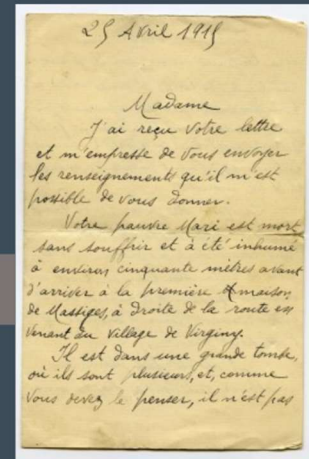 25 Avril 1915
Madame
J'ai reçu votre lettre
et m'empresse de vous envoyer
les renseignements qu'il m'est
possible de vous donner.
Votre pauvre Mari est mort
sans souffrir et à été inhumé
à environ cinquante mètres avant
d'arriver à la première maison
de Massiges, à droite de la route en
venant du village de Virginy.
Il est dans une grande tombe,
où ils sont plusieurs, et, comme
vous devez le penser, il n'est pas